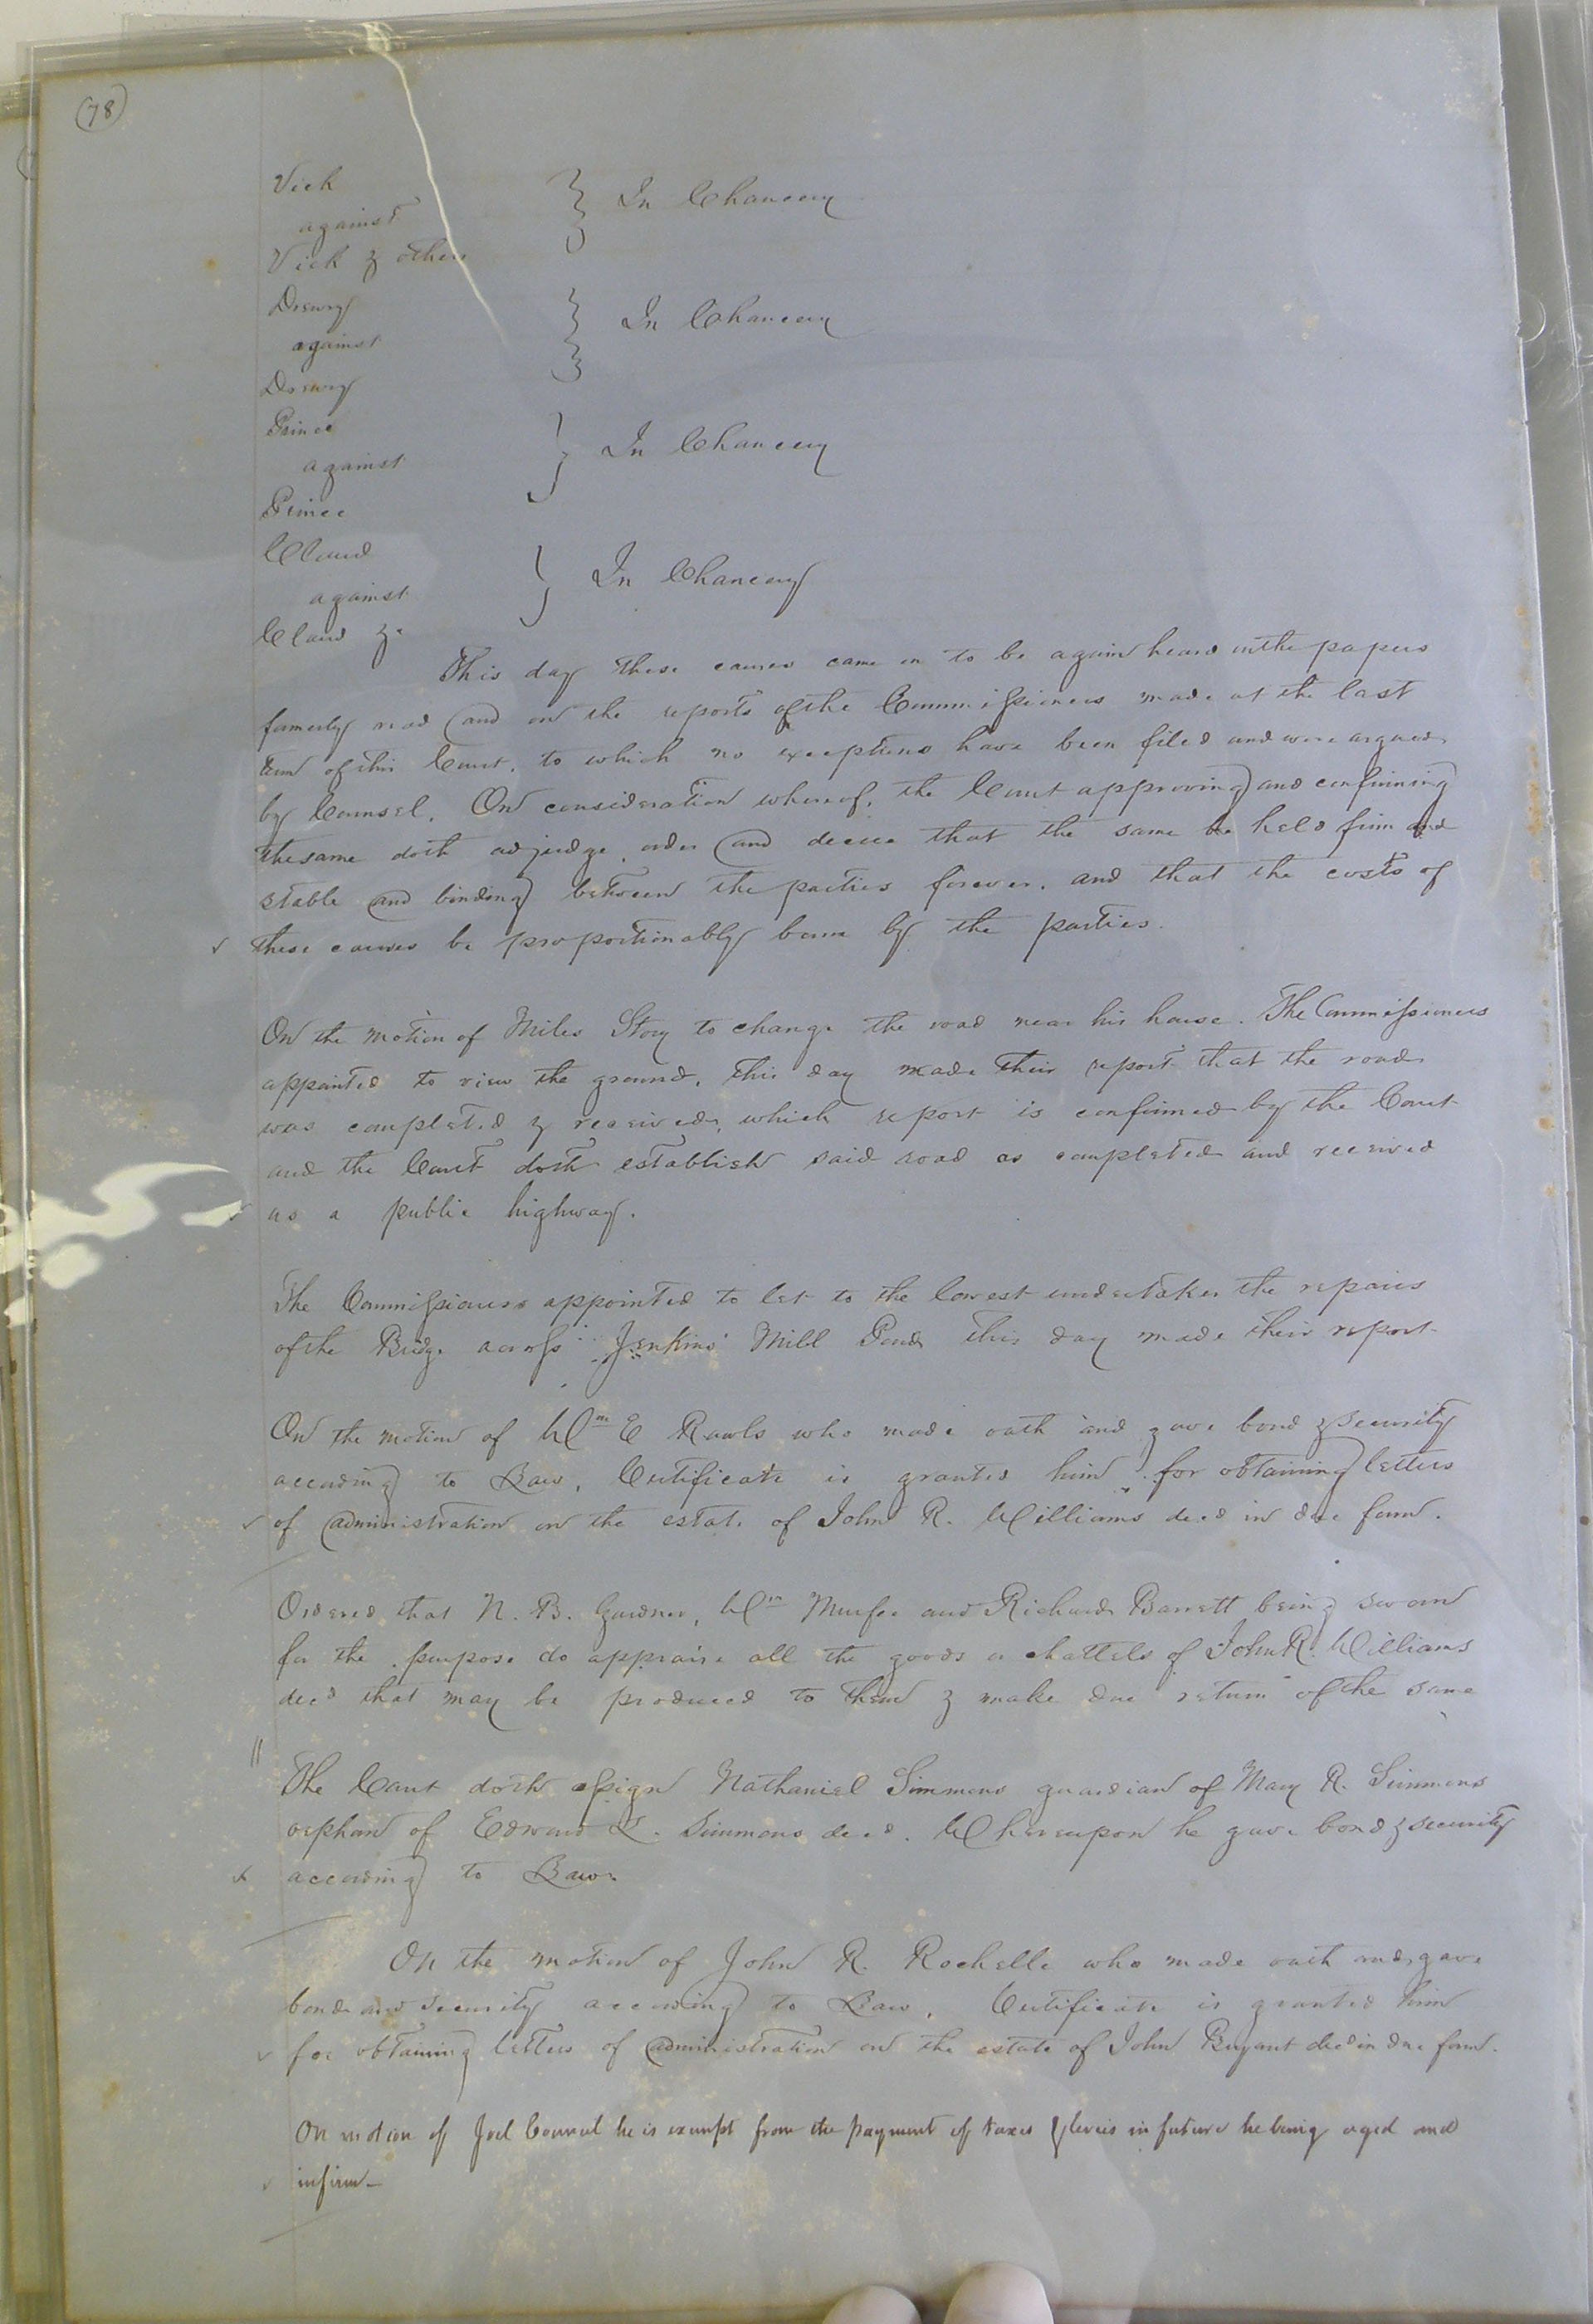 (78)
Vick
against } In Chancery
Vick & others
Drewry
against } In Chancery
Drewry
Prince
against } In Chancery
Prince
Claud
against } In Chancery
Claud &c
This day these causes came on to be again heard on the papers
formerly read and on the reports of the Commissioners made at the last
term of this Court, to which no exceptions have been filed and were argued
by Counsel. On consideration whereof, the Court approving and confirming
the same doth adjudge, order and decree that the same be held firm and
stable and binding between the parties forever, and that the costs of
these causes be proportionably borne by the parties.
On the motion of Miles Story to change the road near his house. The Commissioners
appointed to view the ground, this day made their report that the road
was completed & received, which report is confirmed by the Court
and the Court doth establish said road as completed and received
as a public highway.
The Commissioners appointed to let to the lowest undertaker the repairs
of the Bridge across Jenkins' Mill Pond this day made their report
On the motion of Wm E Rawls who made oath and gave bond & security
according to Law, Certificate is granted him for obtaining letters
of administration on the estate of John R. Williams decd in due form.
Ordered that N. B. Gardner, Wm Murfee and Richard Barrett being sworn
for the purpose do appraise all the goods & chattels of John R. Williams
decd that may be produced to them & make due return of the same
The Court doth assign Nathaniel Simmons guardian of Mary R. Simmons
orphan of Edward L. Simmons decd. Whereupon he gave bond & security
according to Law.
On the motion of John R. Rochelle who made oath and gave
bond and security according to Law, Certificate is granted him
for obtaining letters of administration on the estate of John Bryant decd in due form.
On motion of Joel Council he is exempt from the payment of taxes & levies in future he being aged and
infirm—